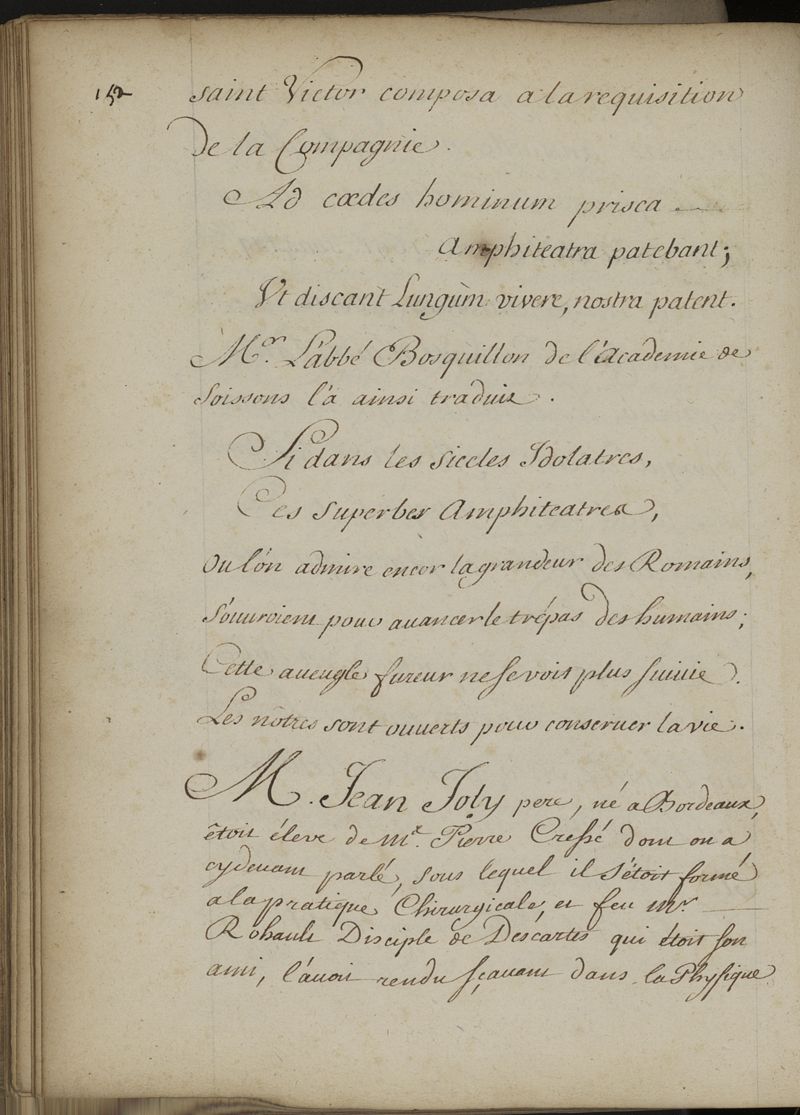 152
saint Victor composa a la requisition
de la Compagnie.
Ad cœdes hominum prisca
Amphiteatra patebant;
Vt discant Lungùm vivere, nostra patent.
Mr. L'abbé Bosquillon de l'Academie de
Soissons l'a ainsi traduit.
Si dans les siecles Idolatres,
Ces superbes Amphiteatres,
Ou l'on admire encor la grandeur des Romains,
S'ouuroient pour auancer le trépas des humains;
Cette aueugle fureur ne se voit plus suiuie.
Les nôtres sont ouuerts pour conseruer la vie.
M. Jean Joly pere, né a Bordeaux,
êtoit éleve de Mr. Pierre Cressé dont on a
cydeuant parlé, sous lequel il s'étoit formé
a la pratique Chirurgicale, et feu Mr
Rohault Disciple de Descartes qui étoit son
ami, l'auoit rendu sçauant dans la Physique